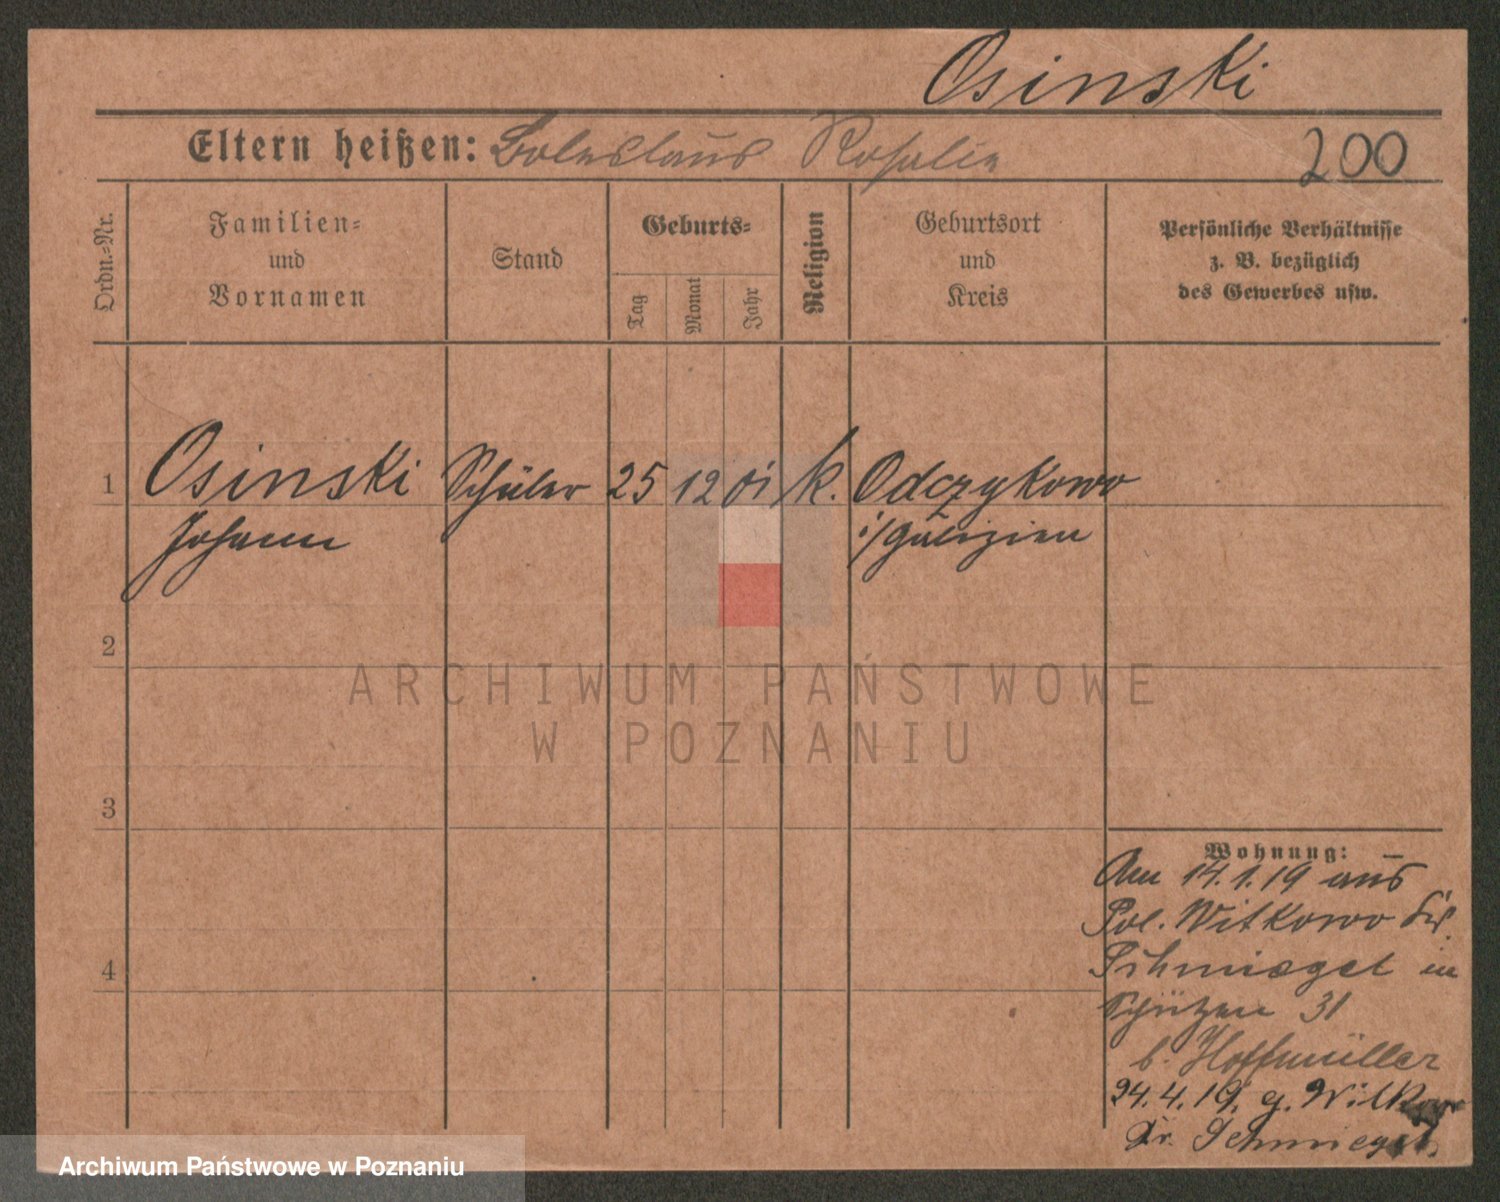 Osinski
Eltern heißen: Boleslaus Rosalie
200
Ordn.-Nr.
Familien-
und
Vornamen
Stand
Geburts-
Tag
Monat
Jahr
Religion
Geburtsort
und
Kreis
Persönliche Verhältnisse
z. B. bezüglich
des Gewerbes usw.
1 Osinski Schüler 25 12 01 k. Odczykowo
Johann i/Galizien
2
3
4
Wohnung:
Am 14.1.19 aus
Pol. Witkowo Kr.
Schmiegel in
Schützen 31
b. Hoffmüller
24.4.19. n. Witkowo
Kr. Schmiegel.
ARCHIWUM PAŃSTWOWE
W POZNANIU
Archiwum Państwowe w Poznaniu